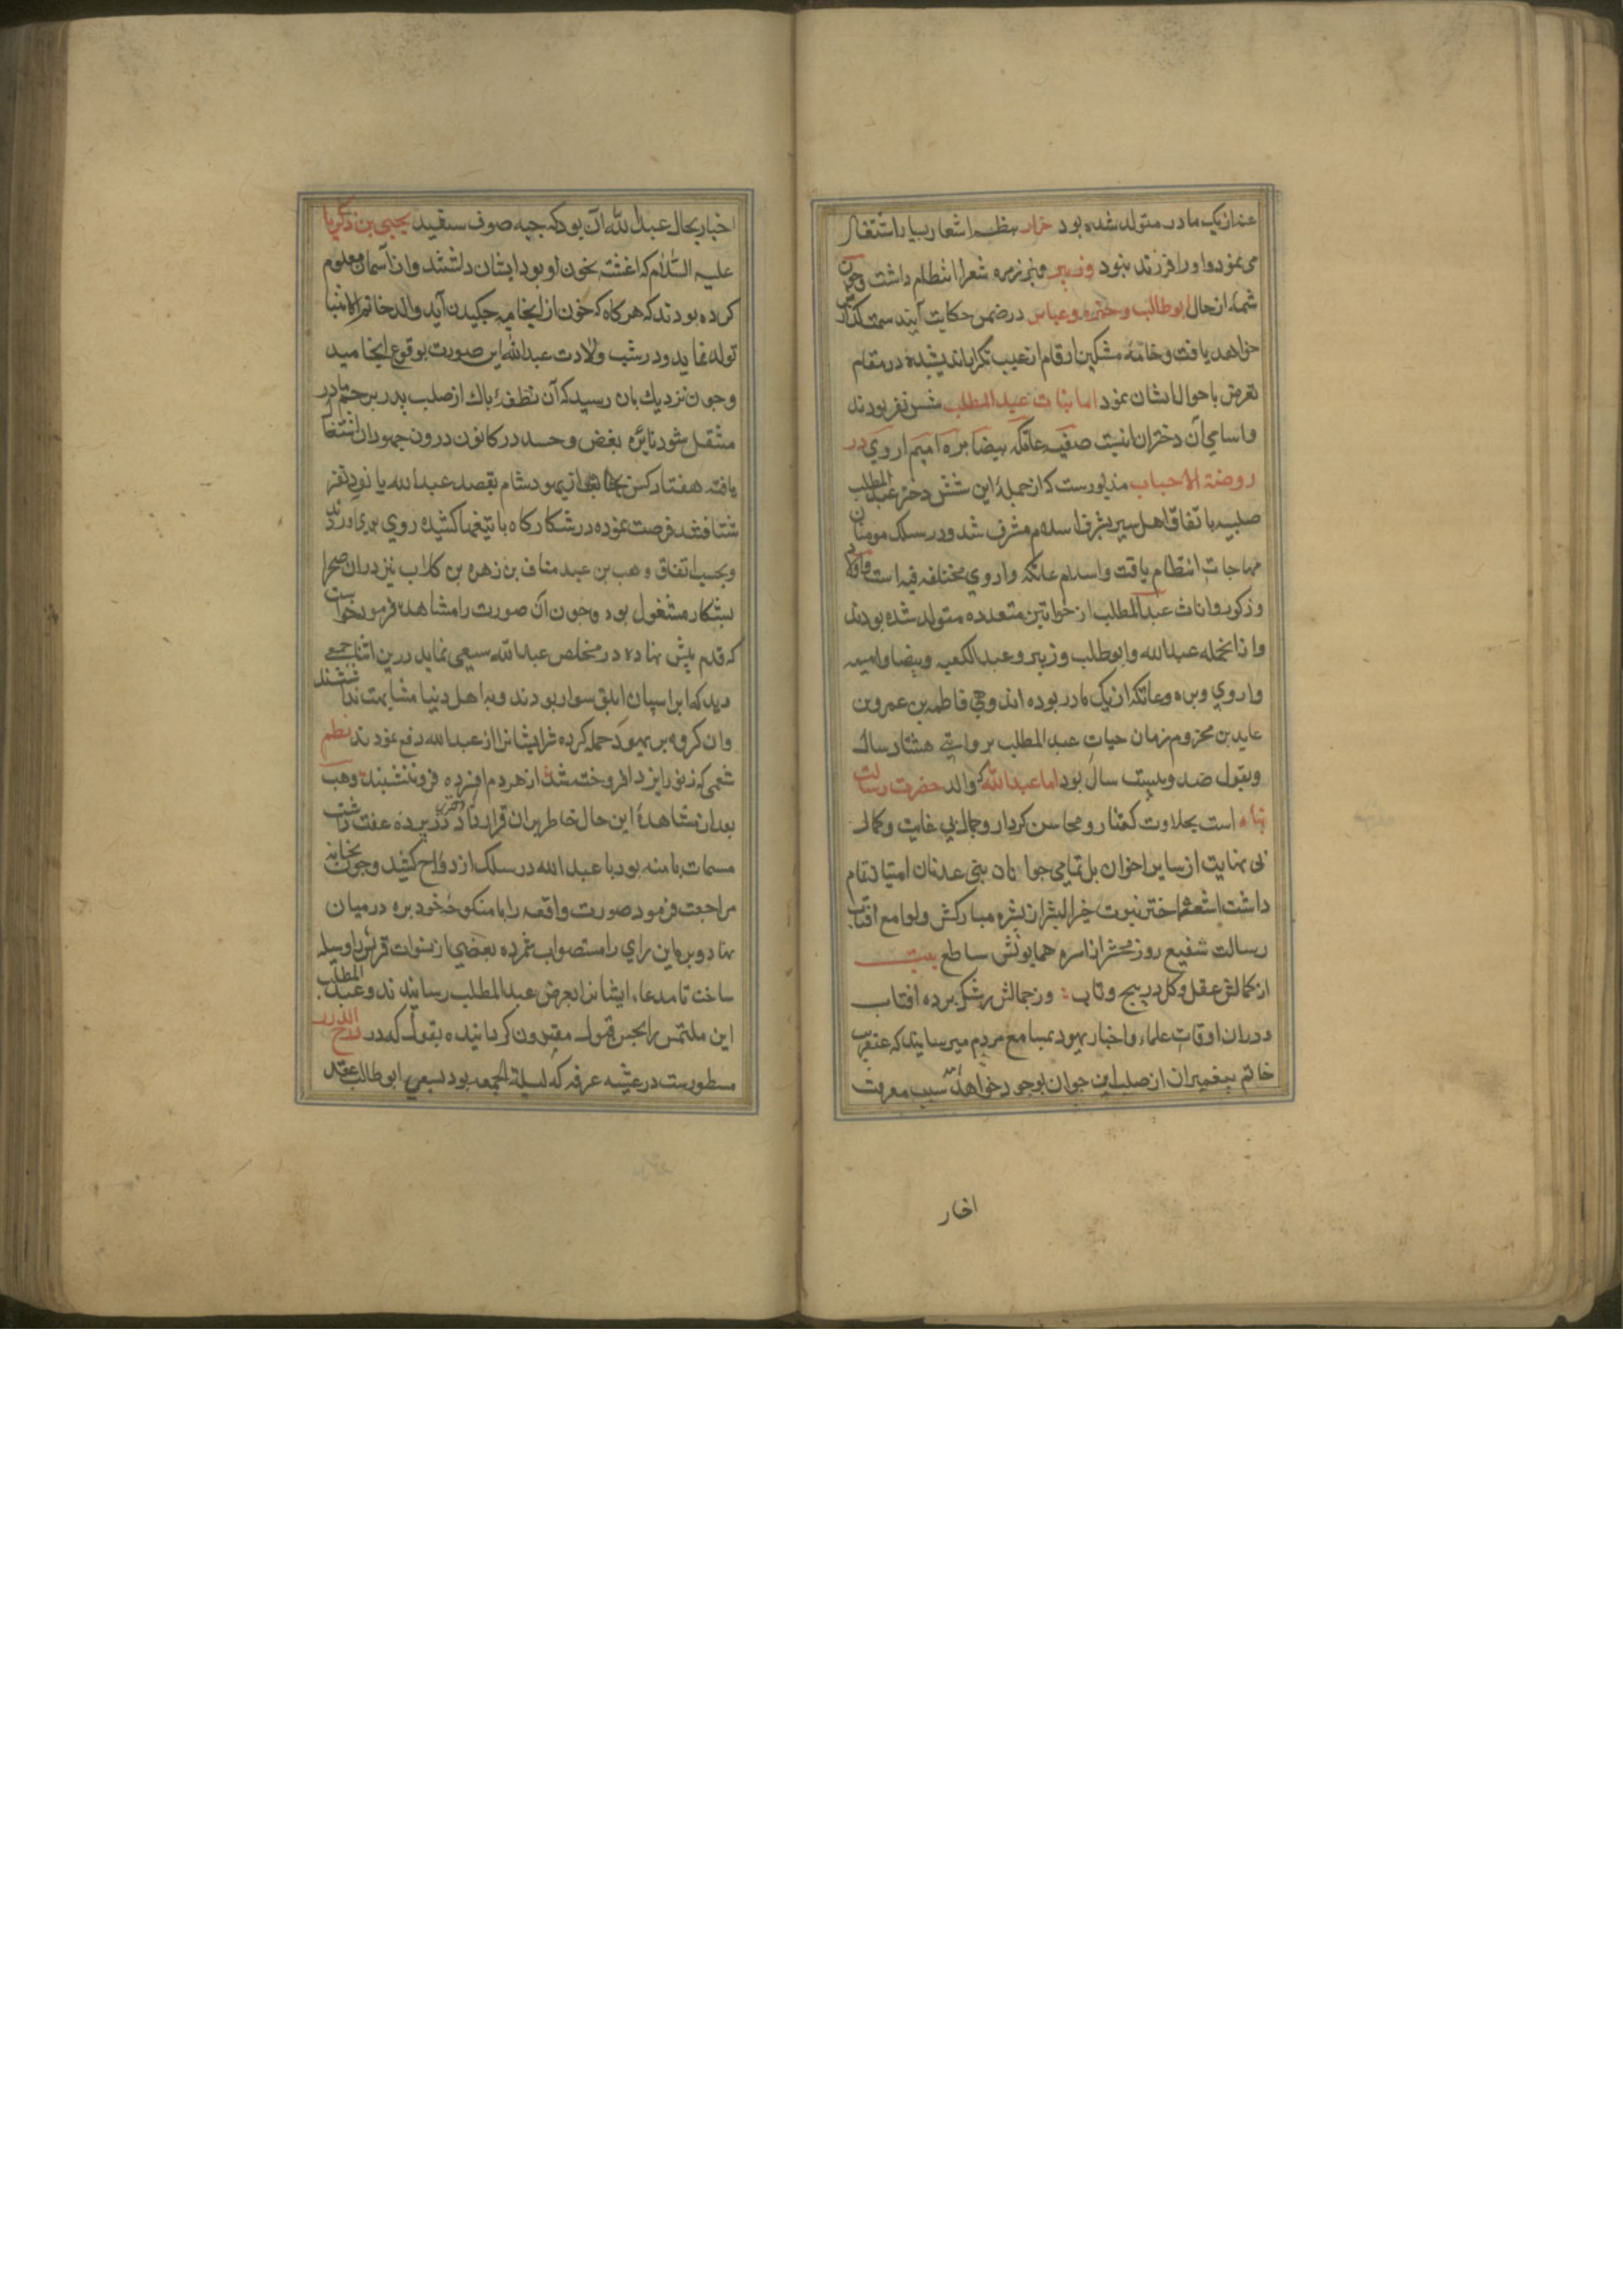 عنه از یک مادر متولد شده بود ضرار بنظم اشعار بسیار اشتغال
می نمود و او را فرزند نبود و زبیر نیز در زمره شعرا انتظام داشت و چون
شمهٔ از حال ابوطالب و حمزه و عباس در ضمن حکایت آینده سمت گذارش
خواهد یافت و خامهٔ مشکین ارقام از عیب تکرار اندیشیده در مقام
تعرض باحوال ایشان نمود اما بنات عبد المطلب شش نفر بودند
و اسامی آن دختران اینست صفیه عاتکه بیضا بره امیم اروی در
روضة الاحباب مذبورست که از جملهٔ این شش دختر عبد المطلب
صفیه باتفاق اهل سیر بشرف اسلام مشرف شد و در سلک مومنان
مهاجات انتظام یافت و اسلام عاتکه و اروی مختلف فیه است و اولاد
و زکور و اناث عبد المطلب از خواتین متعدده متولد شده بودند
و از انجمله عبد الله و ابوطلب و زبیر و عبد الکعبه و بیضا و امیمه
و اروی و بره و عاتکه از یک مادر بوده اند و هی فاطمه بن عمرو بن
عاید بن مخزوم زمان حیات عبد المطلب بروایتی هشتاد سال
و بقول صد و بیست سال بود اما عبد الله که والد حضرت رسالت
پناه است بحلاوت گفتار و محاسن کردار و جمال بی غایت و کمال
بی نهایت از سایر اخوان بل تمامی جوانان بنی عدنان امتیاز تمام
داشت اشعهٔ اختر نبوت خیر البشر از بشره مبارکش و لوامع افتاب
رسالت شفیع روز محشر از اسره همایونش ساطع بیت
از کمالش عقل کل در پیچ و تاب وز جمالش رشک برده افتاب
و دران اوقات علماء و اخبار یهود بمسامع مردم میرسانیدند که عنقریب
خاتم پیغمبران از صلب این جوان بوجود خواهد آمد سبب معرفت
اخبار
اخبار بحال عبد الله آن بود که جبه صوف سفید یحیی بن ذکریا
علیه السلام که اغشته بخون او بود ایشان داشتند و از آسمان معلوم
کرده بودند که هرگاه که خون از انجامه چکیدن آید والد خاتم الانبیا
تولد نماید و در شب ولادت عبد الله این صورت بوقوع انجامید
و چون نزدیک بان رسید که آن نطفهٔ پاک از صلب پدر برحم مادر
منتقل شود نایره بغض و حسد در کانون درون جهودان اشتعال
یافته هفتاد کس از یهود شام بقصد عبد الله
شتافتند فرصت نموده در شکارگاه با تیغها کشیده روی بوی آوردند
و بحسب اتفاق وهب بن عبد مناف بن زهره بن کلاب نیز دران صحرا
بشکار مشغول بود و چون آن صورت را مشاهده فرمود خواست
که قدم پیش نهاده در مخلص عبد الله سعی نماید درین اثنا جمعی
دید که بر اسپان ابلق سوار بودند و به اهل دنیا مشابهت نداشتند
و ان گروه بر یهود حمله کرده شر ایشانرا از عبد الله دفع نمودند نظم
شمعی که ز نور ایزد افروخته شد از هر دم افسرده فرو ننشیند وهب
بعد از مشاهدهٔ این حال خاطر بران قرار داد که دختری که در پرده عفت داشت
مسمات بامنه بود با عبد الله در سلک ازدواج کشد و چون بخانه
مراجعت فرمود صورت واقعه را با منکوحهٔ خود بره در میان
نهاد و بره این رای را مستصواب شمرده بعضی از نسوات قریش را وسیله
ساخت تا مدعاء ایشانرا بعرض عبد المطلب رسانیدند و عبد المطلب
این ملتمس را بحسن قبول مقرون گردانیده بقول که در درج الدرر
مسطورست در عشیه عرفه که لیلة الجمعه بود بسعی ابوطالب عقد